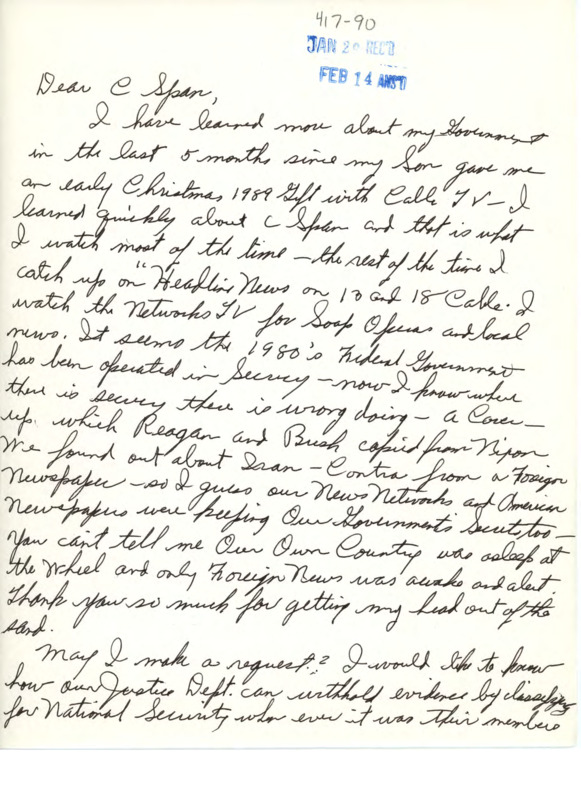 417-90
JAN 20 REC'D
FEB 14 ANS'D
Dear C Span,
I have learned more about my Government
in the last 5 months since my Son gave me
an early Christmas 1989 Gift with Cable TV – I
learned quickly about C Span and that is what
I watch most of the time – the rest of the time I
catch up on "Headline News on 10 and 18 Cable. I
watch the Networks TV for Soap Operas and local
news. It seems the 1980's Federal Government
has been operated in Secrecy – now I know where
there is secrecy there is wrong doing – a Cover –
up. which Reagan and Bush copied from Nixon
We found out about Iran – Contra from a Foreign
Newspaper – so I guess our News Networks and American
Newspapers were keeping Our Government's Secrets too –
You can't tell me Our Own Country was asleep at
the Wheel and only Foreign News was awake and alert.
Thank you so much for getting my head out of the
sand.
May I make a request? I would like to know
how our Justice Dept. can withhold evidence by classifying
for National Security when ever it was their members